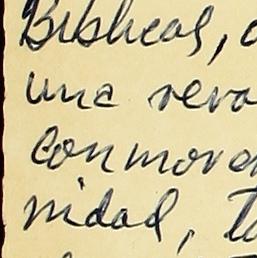 Bíblicas,
una revo
conmover
nidad, t